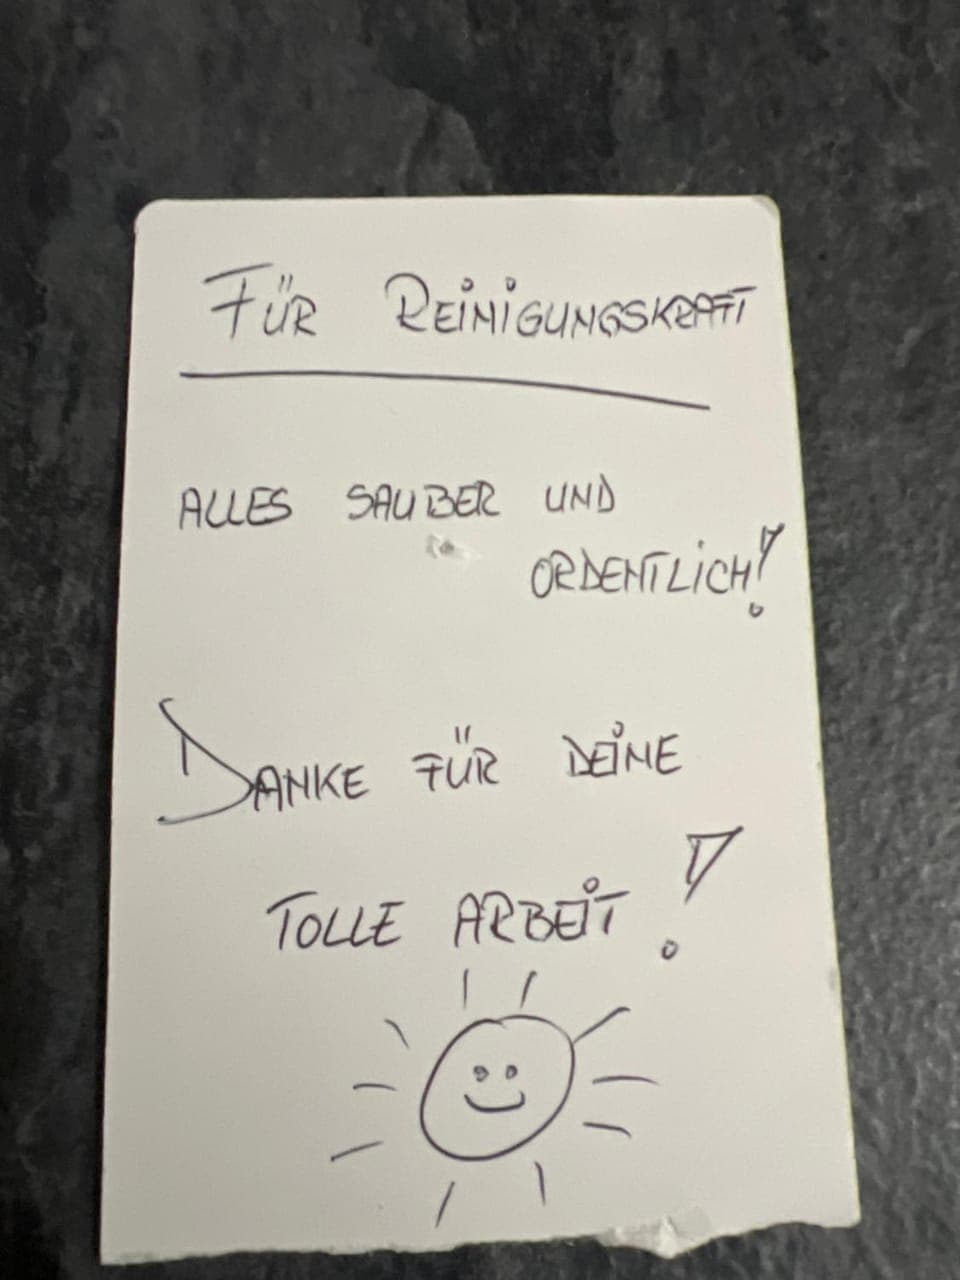 FÜR REINIGUNGSKRAFT
ALLES SAUBER UND
ORDENTLICH!
DANKE FÜR DEINE
TOLLE ARBEIT!